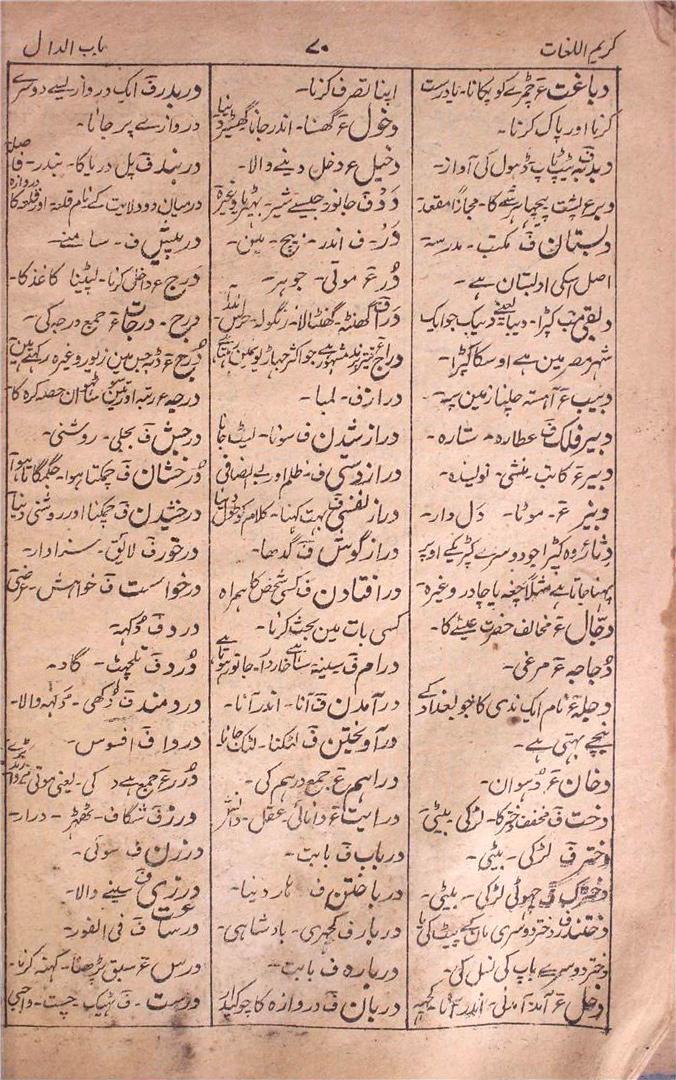 کریم اللغات
۷۰
باب الدال
دباغت ع چمڑے کو پکانا۔ یا درست
کرنا اور پاک کرنا۔
دبدبہ ف ڈہول کی آواز۔
دبر ع پشت پچہاڑی کا۔ مجازاً مقعد
دبستان ف مکتب۔ مدرسہ
اصل اسکی ادبستان ہے۔
شہر مصر مین ہے اوسکا کپڑا۔
دبیب ع آہستہ چلنا زمین پہ۔
دبیر فلک ف عطارد۔ ستارہ۔
دبیر ع کاتب۔ منشی۔ نویسندہ۔
دبیز ع۔ موٹا۔ دَل دار۔
دثار وہ کپڑا جو دوسرے کپڑیکے اوپر
پہنا جاتا ہے مثلاً چغہ یا چادر وغیرہ۔
دجّال ع مخالف حضرت عیسےٰ کا۔
دُجاجہ ع مرغی۔
دجلہ ع نام ایک ندی کا جو بغداد کے
نیچے بہتی ہے۔
دخان ع دُہوان۔
دخت ف مخفف دختر کا۔ لڑکی بیٹی۔
دختر ف لڑکی۔ بیٹی۔
دخترک ف چھوٹی لڑکی۔ بیٹی۔
دختر دوسرے باپ کی نسل کی۔
دخل ع آمد آمدنی۔ اندر آنا۔
اپنا تصرف کرنا۔
دخول ع گھسنا۔ اندر جانا
دخیل ع دخل دینے والا۔
دَدْ ف جانور جیسے شیر۔ بہیڑیا وغیرہ
دَر۔ ف اندر۔ بیچ۔ مین۔
دُر ع موتی۔ جوہر۔
درا ف گھنٹہ۔ گھنٹالا۔ زنگولہ۔ جرس۔
دراز ف۔ لمبا۔
دراز شدن ف سونا۔ لیٹ جانا
دراز دستی ف۔ ظلم اور بے انصافی
دراز نفسی ف بہت کہنا۔ کلام کو طول دینا
دراز گوش ف گدھا۔
در افتادن ف کسی شخص کا ہمراہ
کسی بات مین بحث کرنا۔
درآمدن ف آنا۔ اندر آنا۔
درآویختن ف لٹکنا۔ لٹک جانا
دراہم ع جمع درہم کی۔
درایت ع دانائی۔ عقل۔ دانش
درباب ف بابت۔
درباختن ف ہار دینا۔
دربار ف کچہری۔ بادشاہی۔
دربارہ ف بابت۔
دربان ف دروازہ کا چوکیدار
دربدر ف ایک دروازیسے دوسرے
دروازے پر جانا۔
دربند ف پل دریا کا۔ بندر۔
درمیان دو ولایت کے نام قلعہ اور قلعہ کا دروازہ
درپیش ف۔ سامنے۔
درج ع داخل کرنا۔ لپٹنا کاغذ کا۔
درج۔ درجات ع جمع درجہ کی۔
دُرج ع ڈبہ جس مین زیور وغیرہ رکھتے ہین
درخش ف بجلی۔ روشنی۔
درخشان ف چمکتا ہوا۔ جگمگاتا ہوا
درخشیدن ف چمکنا اور روشنی دینا
درخور ف لایق۔ سزادار۔
درخواست ف خواہش۔ عرضی
درد ف دُکہہ
دُرد ف تلچھٹ۔ گاد۔
دردمند ف دُکھی۔ دُکہہ والا۔
دردا ف افسوس۔
درز ف شگاف۔ درار۔
درزن ف سوئی۔
درزی ف سینے والا۔
درساعت ف فی الفور۔
درس ع سبق پڑھنا۔ کہنہ کرنا۔
درست۔ ف ٹھیک۔ چست۔ واجبی